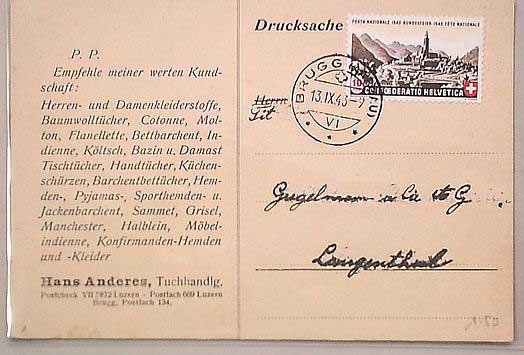 P. P.
Empfehle meiner werten Kund-
schaft:
Herren- und Damenkleiderstoffe,
Baumwolltücher, Cotonne, Mol-
ton, Flanellette, Bettbarchent, In-
dienne, Költsch, Bazin u. Damast
Tischtücher, Handtücher, Küchen-
schürzen, Barchentbettücher, Hem-
den-, Pyjamas-, Sporthemden- u.
Jackenbarchent, Sammet, Grisel,
Manchester, Halblein, Möbel-
indienne, Konfirmanden-Hemden
und -Kleider.
Hans Anderes, Tuchhandlg.
Postcheck VII 7872 Luzern - Postfach 609 Luzern
Brugg, Postfach 134.
Drucksache
FESTA NAZIONALE 1943 BUNDESFEIER 1943 FÊTE NATIONALE
10
CONFOEDERATIO HELVETICA
BRUGG
13.IX.43
VI
Herrn
Tit
Gugelmann & Cie
Langenthal
1.50